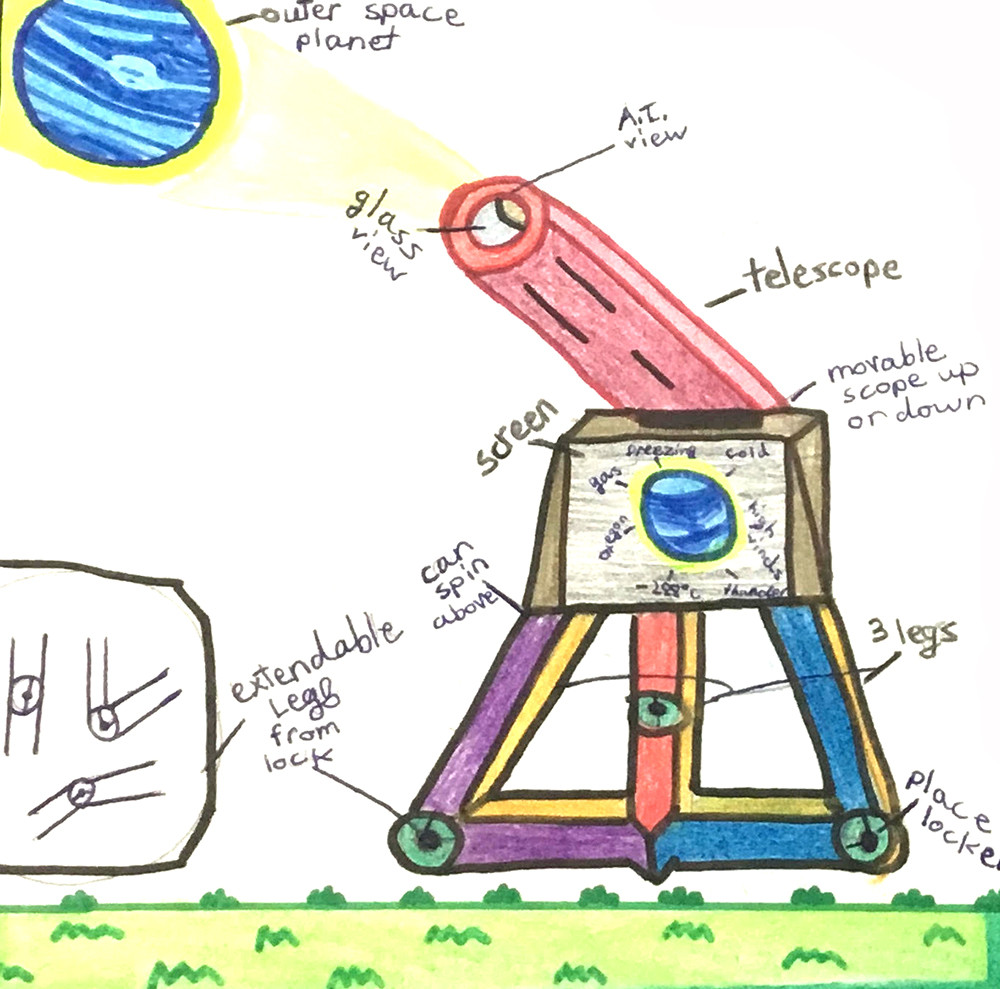 outer space
planet
A.I.
view
glass
view
telescope
movable
scope up
or down
screen
freezing
cold
gas
high
winds
oregon
-288°C
thunder
can
spin
above
3 legs
extendable
Legs
from
lock
place
locke